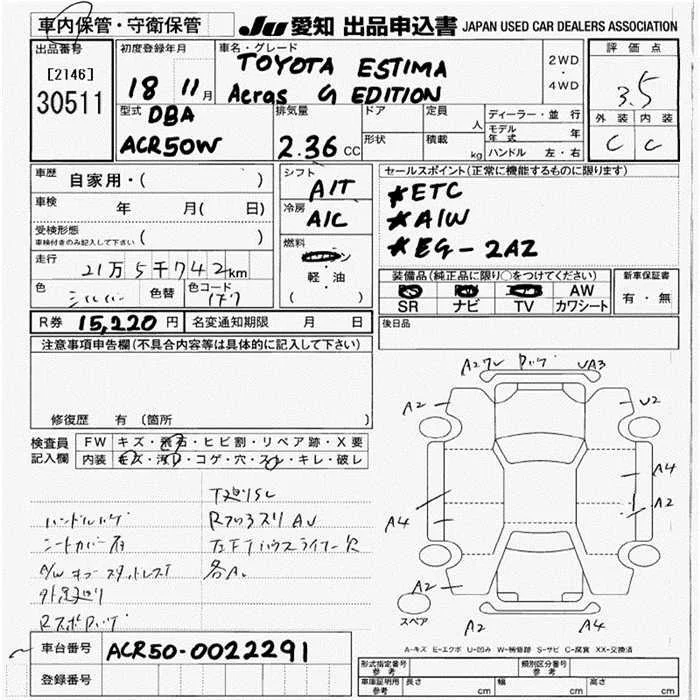 車内保管・守衛保管
JU 愛知 出品申込書 JAPAN USED CAR DEALERS ASSOCIATION
出品番号
[2146]
30511
初度登録年月
18 11月
車名・グレード
TOYOTA ESTIMA
Aeras G EDITION
2WD
・
4WD
評価点
3.5
外装 内装
C C
型式 DBA
ACR50W
排気量
2.36 CC
ドア
形状
定員 人
積載 kg
ディーラー・並行
モデル年式 年
ハンドル 左・右
車歴 自家用・( )
車検 年 月( 日)
受検形態
車検付きのみ記入して下さい ( )
走行 21万5千742km
色 シルバー 色替 色コード
シフト A/T
冷房 A/C
燃料
軽・油
( )
セールスポイント(正常に機能するものに限ります)
*ETC
*A/W
*EG-2AZ
装備品(純正品に限り○をつけてください)
AW
SR ナビ TV カワシート
新車保証書
有・無
R券 15,220円 名変通知期限 月 日
後日品
注意事項申告欄(不具合内容等は具体的に記入して下さい)
修復歴 有 (箇所
検査員
記入欄
FW キズ・飛石・ヒビ割・リペア跡・X要
内装 キズ・汚れ・コゲ・穴・スレ・キレ・破レ
ハンドルハゲ
シートカバー有
A2 UA3
A2 U2
A4 A4
A2
A2
A2 A4
スペア
A-キズ E-エクボ U-凹み W-補修跡 S-サビ C-腐食 XX-交換済
車台番号 ACR50-0022291
登録番号
形式指定番号
参考
類別区分番号
参考
車庫証明用
参考
長さ cm 幅 cm 高さ cm